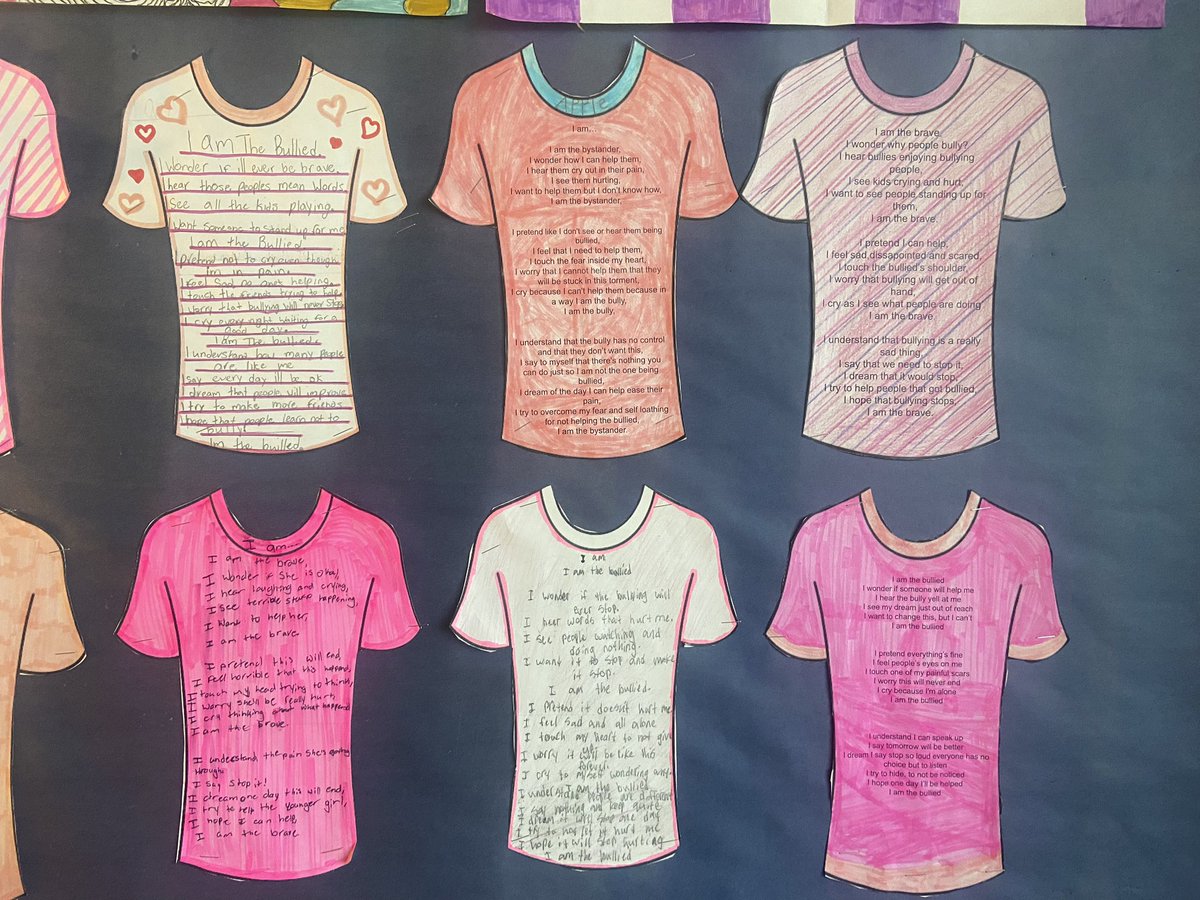 I am The Bullied.
I wonder if ill ever be brave.
I hear those peoples mean words
See all the kids playing.
Want someone to stand up for me
I am the Bullied
I pretend not to cry even though
I'm in pain.
I feel Sad no ones helping.
touch the friends trying to help
worry that bullying will never stop
I cry every night waiting for a
good day.
I am The bullied.
I understand how many people
are like me
Say every day ill be ok
dream that people will improve
I try to make more friends
I hope that people learn not to
bully.
Im the bullied.
APPLE
I am...
I am the bystander,
I wonder how I can help them,
I hear them cry out in their pain,
I see them hurting,
I want to help them but I don't know how,
I am the bystander,
I pretend like I don't see or hear them being
bullied,
I feel that I need to help them,
I touch the fear inside my heart,
I worry that I cannot help them that they
will be stuck in this torment,
I cry because I can't help them because in
a way I am the bully,
I am the bully,
I understand that the bully has no control
and that they don't want this,
I say to myself that there's nothing you
can do just so I am not the one being
bullied,
I dream of the day I can help ease their
pain,
I try to overcome my fear and self loathing
for not helping the bullied,
I am the bystander.
I am the brave,
I wonder why people bully?
I hear bullies enjoying bullying
people,
I see kids crying and hurt,
I want to see people standing up for
them,
I am the brave.
I pretend I can help,
I feel sad dissapointed and scared,
I touch the bullied's shoulder,
I worry that bullying will get out of
hand,
I cry as I see what people are doing
I am the brave.
I understand that bullying is a really
sad thing,
I say that we need to stop it,
I dream that it would stop,
I try to help people that got bullied,
I hope that bullying stops,
I am the brave.
I am...
I am the brave,
I wonder if She is okai,
I hear laughing and crying,
I see terrible stuff happening,
I want to help her,
I am the brave.
I pretend this will end,
I feel horrible that this happend,
I touch my head trying to think,
I worry shell be really hurt,
I cry thinking about what happend
I am the brave.
I understand the pain She's going
through
I say Stop it!
I dream one day this will end,
I try to help the younger girl,
I hope I can help
I am the brave
I am
I am the bullied
I wonder if the bullying will
ever stop.
I hear words that hurt me.
I see people watching and
doing nothing.
I want it to stop and make
it stop.
I am the bullied.
I pretend it doesn't hurt me
I feel sad and all alone
I touch my heart to not give
up.
I worry it will be like this
forever.
I cry to myself wondering why.
I am the bullied
I understand people are different
I say nothing and keep quite
I dream it will stop one day
I try to not let it hurt me
I hope it will stop hurting
I am the bullied
I am the bullied
I wonder if someone will help me
I hear the bully yell at me
I see my dream just out of reach
I want to change this, but I can't
I am the bullied
I pretend everything's fine
I feel people's eyes on me
I touch one of my painful scars
I worry this will never end
I cry because I'm alone
I am the bullied
I understand I can speak up
I say tomorrow will be better
I dream I say stop so loud everyone has no
choice but to listen
I try to hide, to not be noticed
I hope one day I'll be helped
I am the bullied